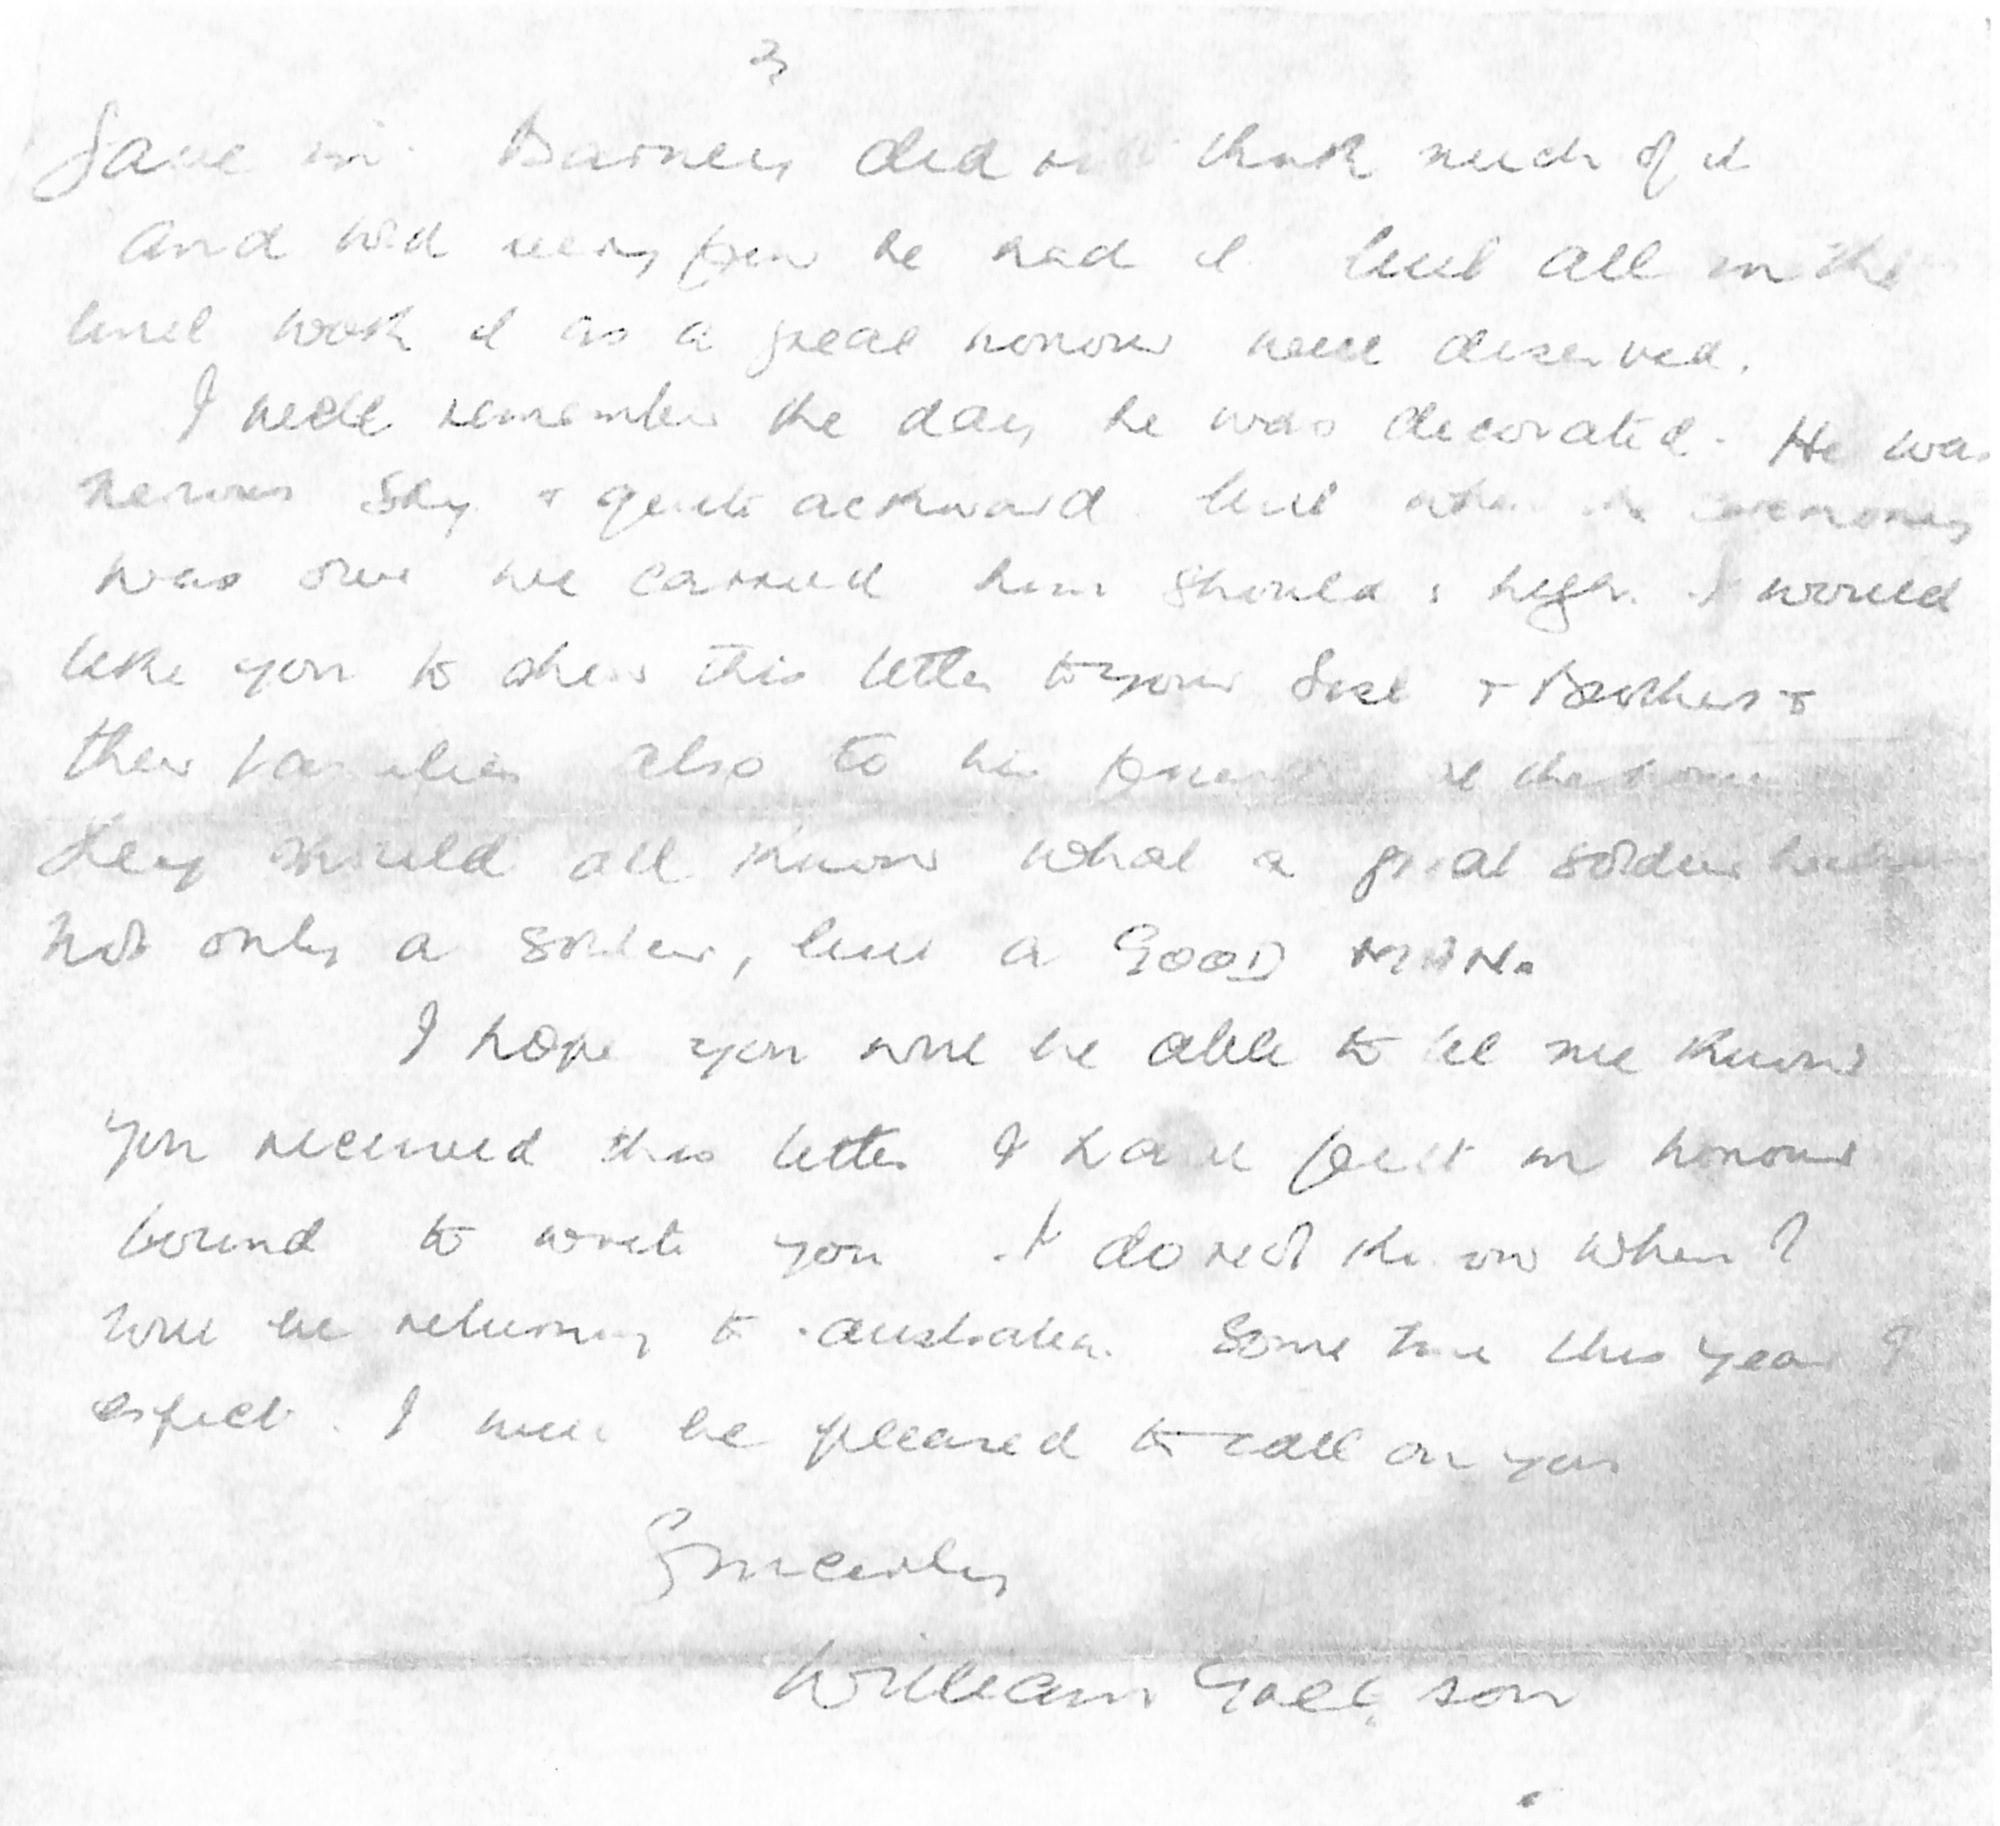 3
Gave in. Barney did not think much of it
and told very few he had it but all in the
unit took it as a great honour well deserved.
I well remember the day he was decorated. He was
nervous shy + quite ackward but when the ceremoney
was over we carried him should r high. I would
like you to show this letter to your Sist + Brothers +
their families also to his at the home
They should all know what a great soldier
not only a soldier, but a GOOD MAN.
I hope you will be able to let me know
you received this letter I have felt in honour
bound to write you I do not know when I
will be returning to Australia. Some time this year I
expect. I will be pleased to call on you
Sincerley
William son